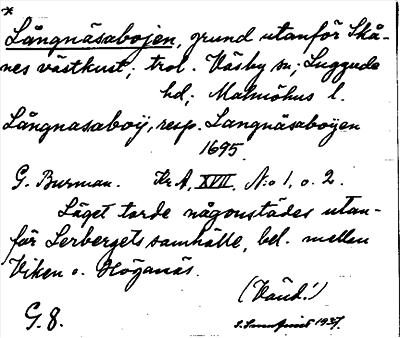 *
Långnäsabojen, grund utanför Skå-
nes västkust; trol. Väsby sn; Luggude
hd; Malmöhus l.
Långnasaboÿ, resp. Langnäsaboÿen
1695.
G. Burman. Kr A, XVII, N:o 1, o. 2.
Läget torde någonstädes utan-
för Lerbergets samhälle, bel. mellan
Viken o. Höganäs.
(Vänd!)
G. 8.
1937.